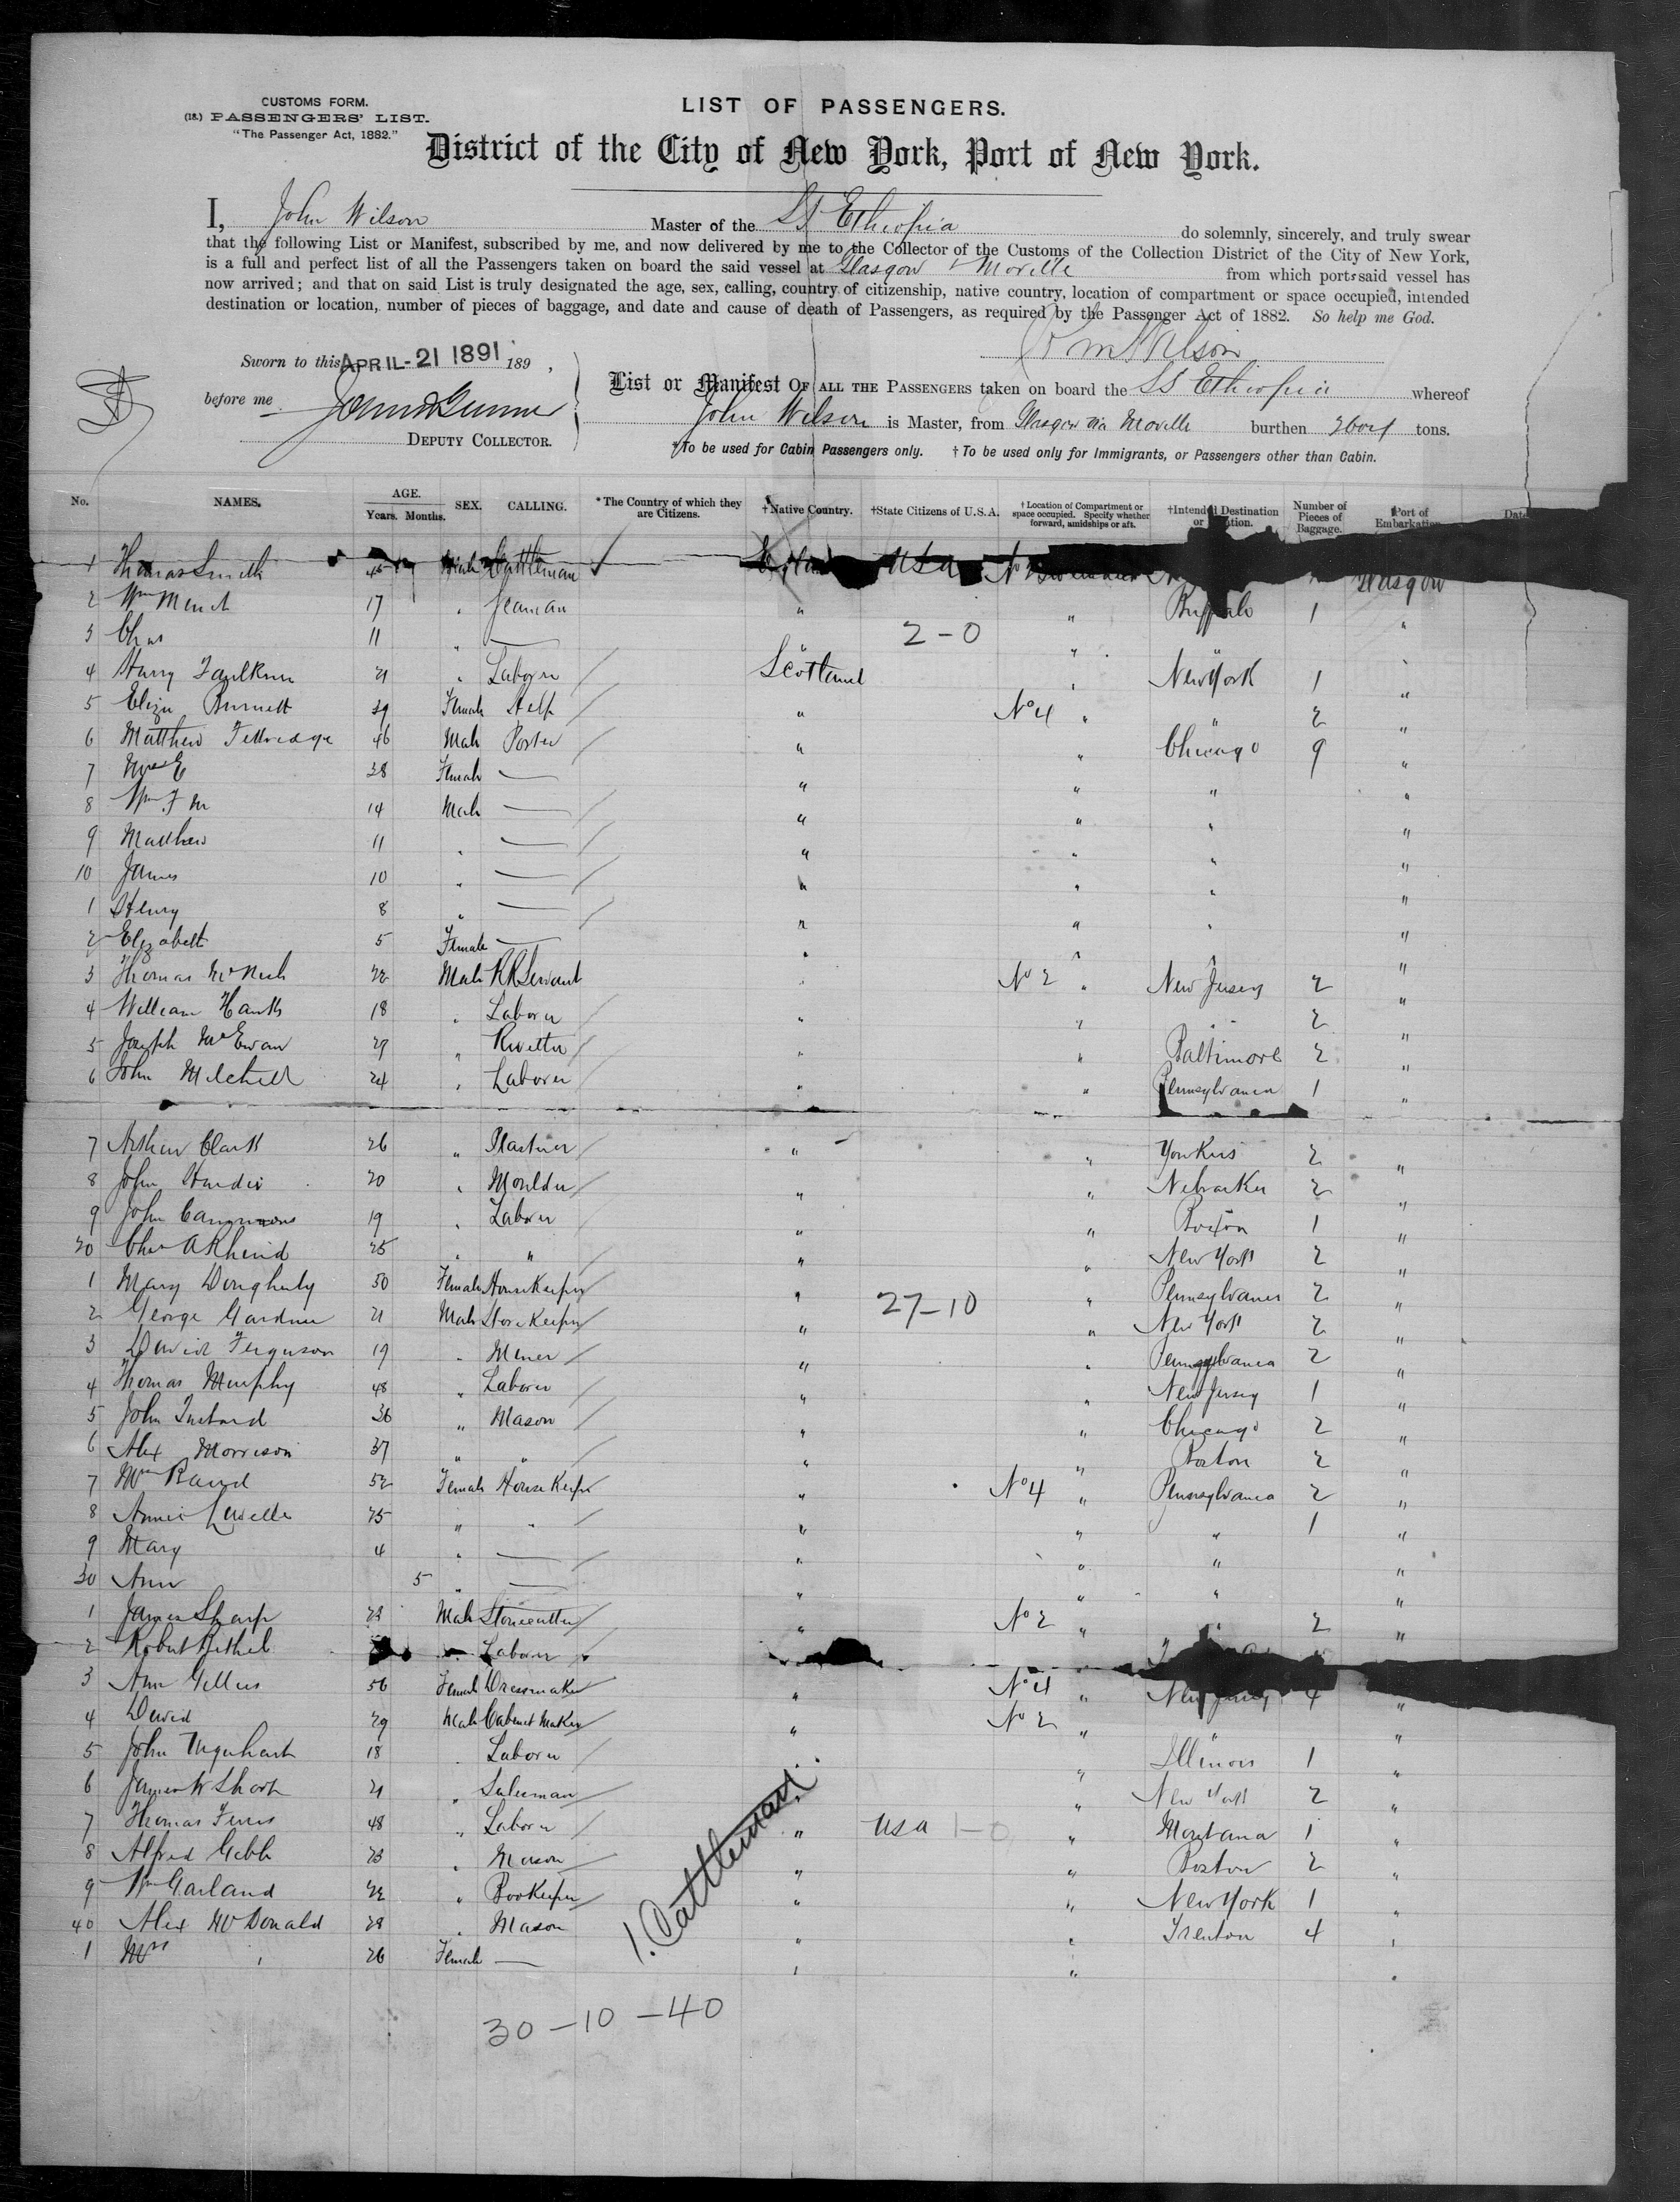 CUSTOMS FORM.
(18.) PASSENGERS' LIST.
"The Passenger Act, 1882."
LIST OF PASSENGERS.
District of the City of New York, Port of New York.
I, John Wilson Master of the SS Ethiopia do solemnly, sincerely, and truly swear
that the following List or Manifest, subscribed by me, and now delivered by me to the Collector of the Customs of the Collection District of the City of New York,
is a full and perfect list of all the Passengers taken on board the said vessel at Glasgow & Moville from which ports said vessel has
now arrived; and that on said List is truly designated the age, sex, calling, country of citizenship, native country, location of compartment or space occupied, intended
destination or location, number of pieces of baggage, and date and cause of death of Passengers, as required by the Passenger Act of 1882. So help me God.
Wilson
Sworn to this APRIL-21 1891 189 ,
before me
DEPUTY COLLECTOR.
List or Manifest OF ALL THE PASSENGERS taken on board the SS Ethiopia whereof
John Wilson is Master, from Glasgow via Moville burthen tons.
*To be used for Cabin Passengers only. †To be used only for Immigrants, or Passengers other than Cabin.
No. NAMES. AGE. Years. Months. SEX. CALLING. *The Country of which they are Citizens. †Native Country. †State Citizens of U.S.A. †Location of Compartment or space occupied. Specify whether forward, amidships or aft. †Intended Destination or Number of Pieces of Baggage. Port of Embarkation Date
1 Thomas Smith 45 Male Cattleman USA Glasgow
2 Wm 17 " Seaman " " Buffalo 1 "
3 Chas 11 " — " 2-0 " " "
4 Harry Faulkner 21 " Laborer Scotland " New York 1 "
5 Eliza Burnett 29 Female Help " No 4 " " 2 "
6 Matthew 46 Male Porter " " Chicago 9 "
7 Mrs E 38 Female — " " " "
8 Wm F M 14 Male — " " " "
9 Matthew 11 " — " " " "
10 James 10 " — " " " "
1 Henry 8 " — " " " "
2 Elizabeth 5 Female — " " " "
3 Thomas 22 Male RR Servant " No 2 " New Jersey 2 "
4 William 18 " Laborer " " " 2 "
5 Joseph McEwan 29 " Rivetter " " Baltimore 2 "
6 John Mitchell 24 " Laborer " " Pennsylvania 1 "
7 Arthur Clark 26 " Plasterer " " Yonkers 2 "
8 John 20 " Moulder " " Nebraska 2 "
9 John 19 " Laborer " " Boston 1 "
20 Chas 25 " " " " New York 2 "
1 Mary Dougherty 50 Female Housekeeper " " Pennsylvania 2 "
27-10
2 George Gardner 21 Male Storekeeper " " New York 2 "
3 David Ferguson 19 " Miner " " Pennsylvania 2 "
4 Thomas Murphy 48 " Laborer " " New Jersey 1 "
5 John 36 " Mason " " Chicago 2 "
6 Alex Morrison 37 " " " " Boston 2 "
7 Mrs Baird 52 Female Housekeeper " No 4 " Pennsylvania 2 "
8 Annie 25 " " " " " 1 "
9 Mary 4 " — " " " "
30 Ann 5 " — " " " "
1 James Sharp 23 Male Stonecutter " No 2 " " 2 "
2 Robert Bethel Laborer
3 Ann 56 Female Dressmaker " No 4 " New Jersey 4 "
4 David 29 Male Cabinet Maker " No 2 " "
5 John Urquhart 18 " Laborer " " Illinois 1 "
6 James W Short 21 " Salesman " " New York 2 "
7 Thomas 48 " Laborer " USA 1-0 " Montana 1 "
8 Alfred Gebb 23 " Mason " " Boston 2 "
9 Wm Garland 22 " Bookeeper " " New York 1 "
40 Alex McDonald 28 " Mason " " Trenton 4 "
1 Mrs " 26 Female — " " "
1. Cattleman.
30-10-40